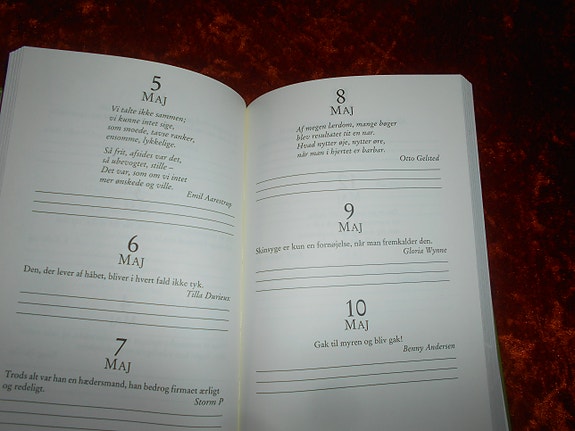 5
MAJ
Vi talte ikke sammen;
vi kunne intet sige,
som moede, tavse ranker,
ensomme, lykkelige.
Så frit, afsides var det,
så ubevogtet, stille –
Det var, som om vi intet
mer ønskede og ville.
Emil Aarestrup
6
MAJ
Den, der lever af håbet, bliver i hvert fald ikke tyk.
Tilla Durieux
7
MAJ
Trods alt var han en hædersmand, han bedrog firmaet ærligt
og redeligt.
Storm P
8
MAJ
Af megen lærdom, mange bøger
blev resultatet tit en nar.
Hvad nytter øje, nytter øre,
når man i hjertet er barbar.
Otto Gelsted
9
MAJ
Skinsyge er kun en fornøjelse, når man fremkalder den.
Gloria Wynne
10
MAJ
Gak til myren og bliv gak!
Benny Andersen